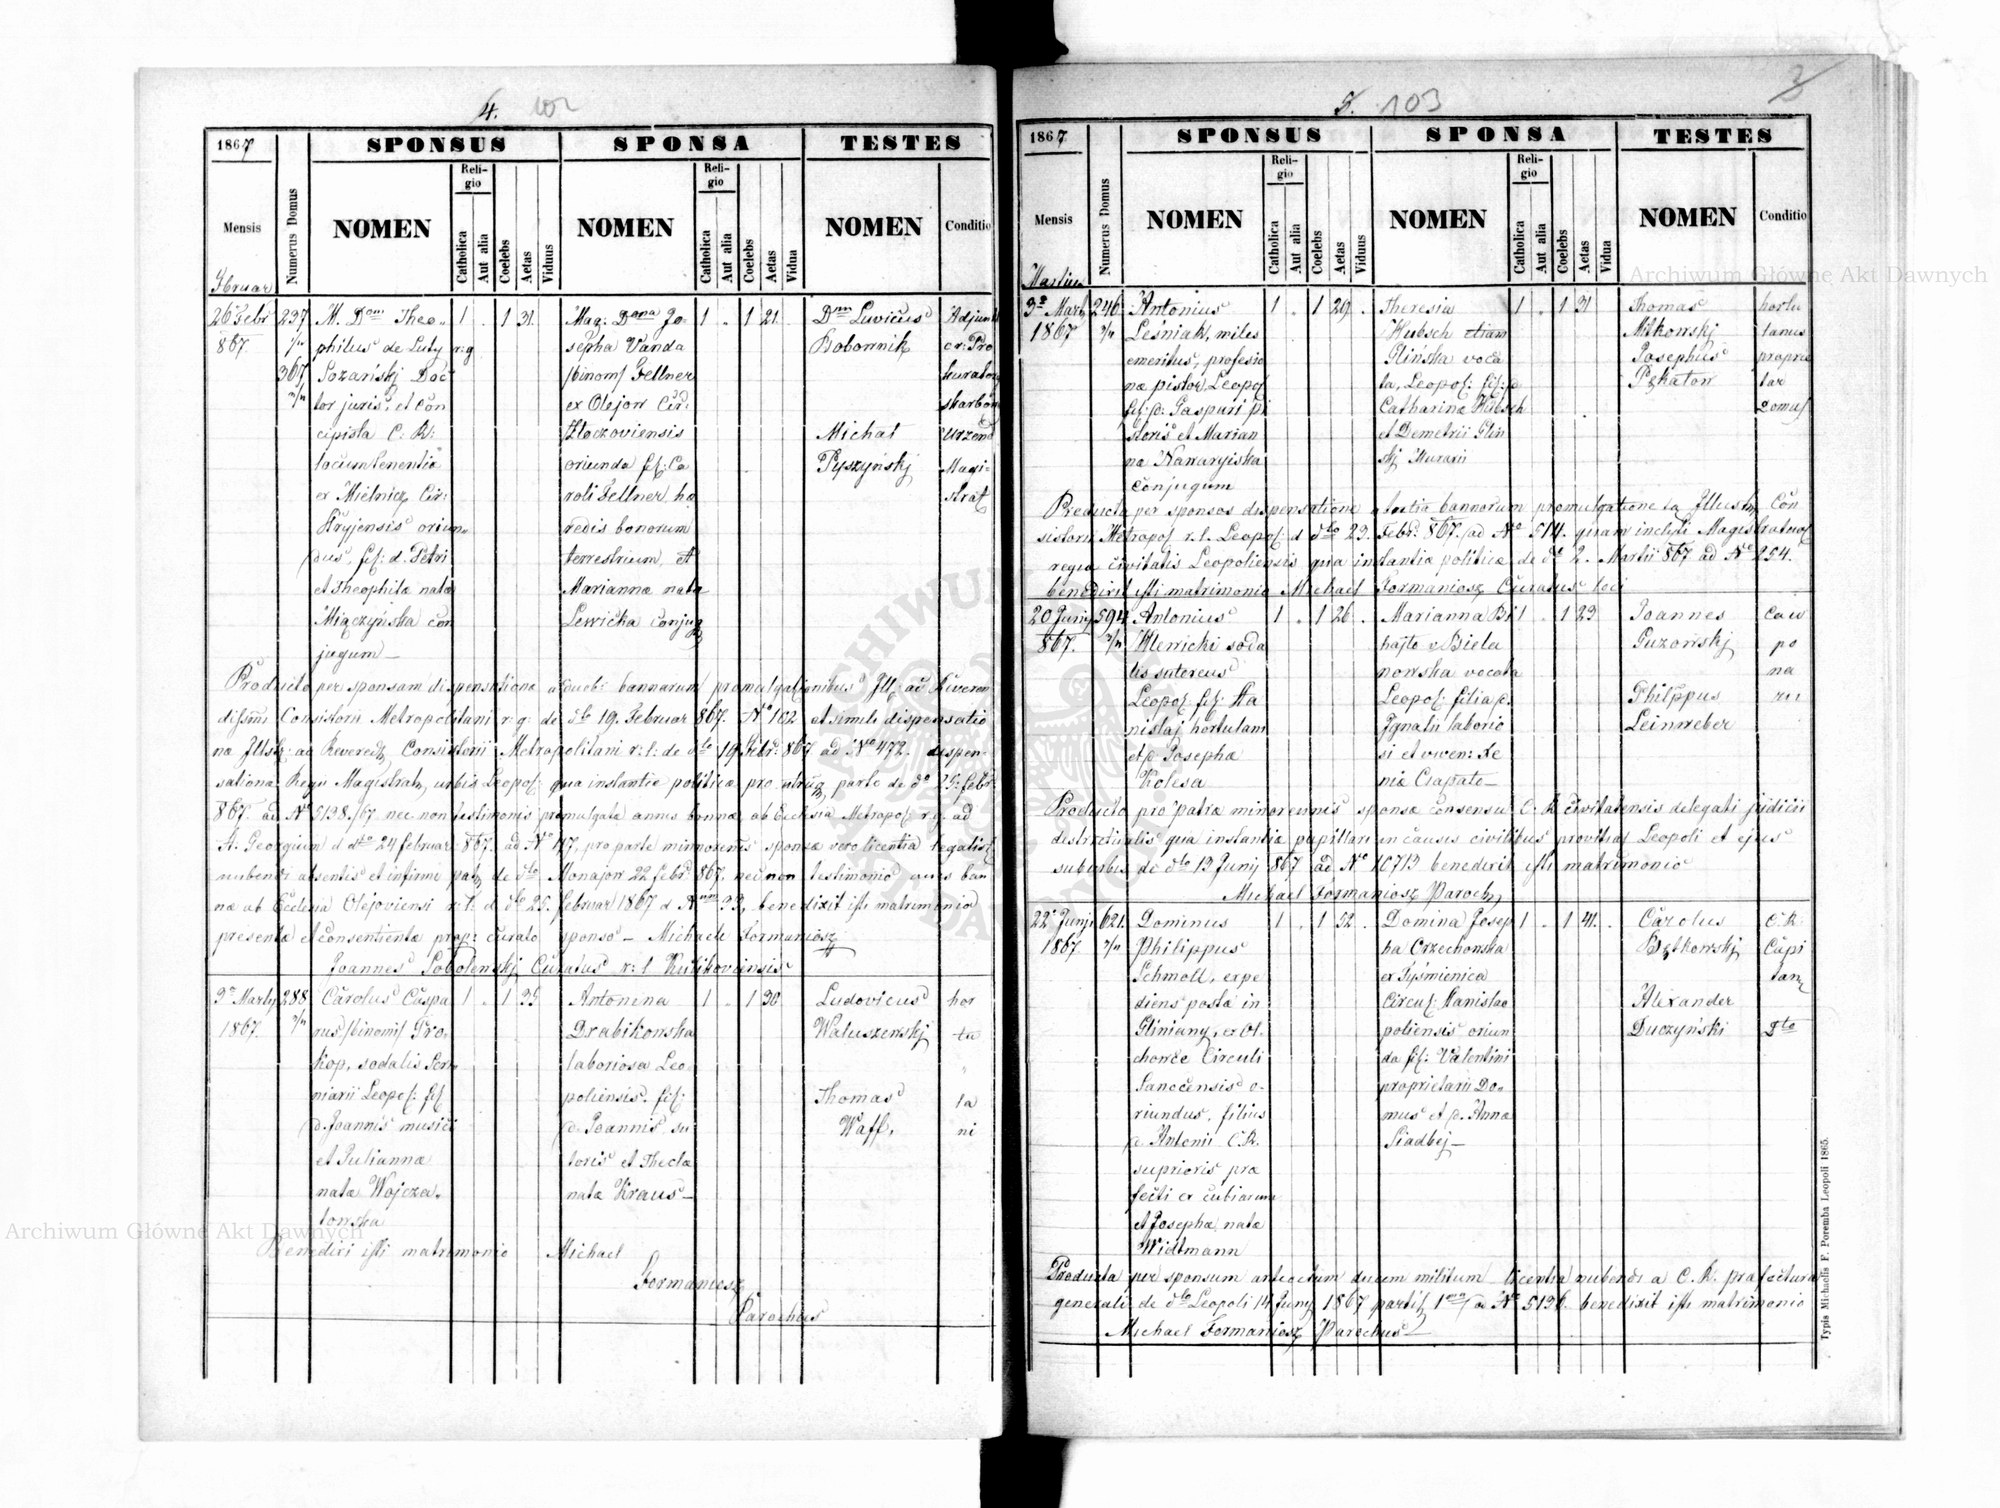 4. 102
1867
SPONSUS
SPONSA
TESTES
Mensis
Numerus Domus
NOMEN
Religio
Catholica
Aut alia
Coelebs
Aetas
Viduus
NOMEN
Religio
Catholica
Aut alia
Coelebs
Aetas
Vidua
NOMEN
Conditio
26 Febr
867.
237
367
M. Dom Theo-
philus de Luty
Pozańskj Doc
tor juris, et con
cipista C: R:
locumtenentia
ex Mielnicz Cir:
Stryjensis oriun-
dus, fil: d. Petri
et Theophila nata
Miączyńska con
jugum
1 . 1 31.
r: g
Mag: Dna Jo-
sepha Vanda
Fellner
ex Olejow Cir:
Złoczoviensis
oriunda fil: Ca
roli Fellner hæ
redis bonorum
terrestrium, et
Marianna nata
Lewicka conjug
1 . 1 21.
Dnn Luvicus
Bobownik
Michał
Pyszyńskj
Adjunkt
Magi-
strat
Producto per sponsam dispensatione a duob: bannorum promulgationibus Ill: ad Reveren
dissimi Consistorii Metropolitani r: g: de dto 19. Februar 867. No 102 et simili dispensatio
na Illstr: ac Reverends Consistorii Metropolitani r: l: de dto 19 Febr: 867 ad No 472. dispen-
sationa Regii Magistrat, urbis Leopol: qua instantiæ politicæ pro utraq parte de do 25. febr.
867. ad No 5138/67 nec non testimonis promulgata annis bannæ, ab Ecclesia Metropol: r: g. ad
S. Georgium d dto 24 februar 867. ad No 117, pro parte minnorenis sponsa vero licentia legalis
nubendi absentis et infirmi patr de dto Monajow 22 febr 867. nec non testimonio banc ban
næ ab Ecclesia Olejoviensi r: l. d do 25. februar 1867 d 33, benedixit isti matrimonio
presente et consentiente propr: curato sponso – Michaele Formaniosz
Joannes Sobolenskj Curatus r: l Kulikoviensis
3 Martij
1867.
288
Carolus Caspa
rus binom Pro-
kop, sodalis
Leopol: fil
d. Joannis musici
et Julianna
nata Wojcza-
kowska
1 . 1 35
Antonina
Drabikowska
laboriosa Leo
poliensis. fil:
d. Joannis, su
toris et Thecla
nata Kraus –
1 . 1 30
Ludovicus
Waluszewskj
Thomas
Waff,
hor
tu
la
ni
Benedixi isti matrimonio Michael
Formaniosz
Parochus
5. 103
3
1867.
SPONSUS
SPONSA
TESTES
Mensis
Martius
Numerus Domus
NOMEN
Religio
Catholica
Aut alia
Coelebs
Aetas
Viduus
NOMEN
Religio
Catholica
Aut alia
Coelebs
Aetas
Vidua
NOMEN
Conditio
3 Mart
1867
246
Antonius
Leśniak, miles
emeritus, profesio
næ pistor, Leopol
fil: d: Gaspari pi
storis et Marian
na Nawaryiska
conjugum
1 . 1 29.
Theresia
Hübsch etiam
Glińska voca
ta, Leopol: fil: d
Catharina Hübsch
et Demetrii Glin
skj Murarii
1 . 1 31
Thomas
Mitkowskj
Josephus
Pękator
hortu
lanus
proprie
tar
domus
Producta per sponsos dispensatione a tertia bannorum promulgatione ta Illustr Con
sistorii Metropol r. l. Leopol: d dto 23. Febr: 867. ad No 514. quam incliti Magistratus
regiæ civitatis Leopoliensis qua instantia politicæ de do 2. Martii 867 ad No 254.
benedixit isti matrimonio Michael Formaniosz Curatus loci
20 Junij
867.
594
Antonius
Klewicki soda
lis sutoreus
Leopol fil: Sta
nislaj hortulani
et d Josepha
Kolesa
1 . 1 26.
Marianna Bi
hajto v Biela
nowska vocata
Leopol: filia d.
Ignatii laborio
si et vivent: Xe
nia Czapate –
1 . 1 23
Joannes
Guzowskj
Philippus
Leinweber
cau
po
na
rii
Producto pro patræ minorennis sponsæ consensu C. R. civitatensis delegati judicii
districtualis qua instantiæ pupillaris in causis civilibus Leopoli et ejus
suburbis de dto 13 Junij 867 ad No 10713 benedixit isti matrimonio
Michael Formaniosz Paroch
22 Junij
1867.
621.
Dominus
Philippus
Schmoll, expe
diens posta in
Gliniany, ex Ol-
chowce Circuli
Sanocensis o-
riundus, filius
d. Antonii C. R.
suprioris præ
fecti ex cubiarum
et Josepha nata
Widtmann
1 . 1 52.
Domina Josep
ha Orzechowska
ex Tyśmienica
Circul: Stanislao
poliensis oriun
da fil: Valentini
proprietarii Do-
mus et d. Anna
Siadbej –
1 . 1 41.
Carolus
Bętkowskj
Alexander
Duczyński
C. R.
Capi
tan
Dto
Producta per sponsum ducem militum licentia nubendi a C. R. præfectura
generali de dto Leopoli 14 Juny 1867 ad No 5196. benedixit isti matrimonio
Michael Formaniosz Parochus
Typis Michaelis F. Poremba Leopoli 1865.
Archiwum Główne Akt Dawnych
Archiwum Główne Akt Dawnych